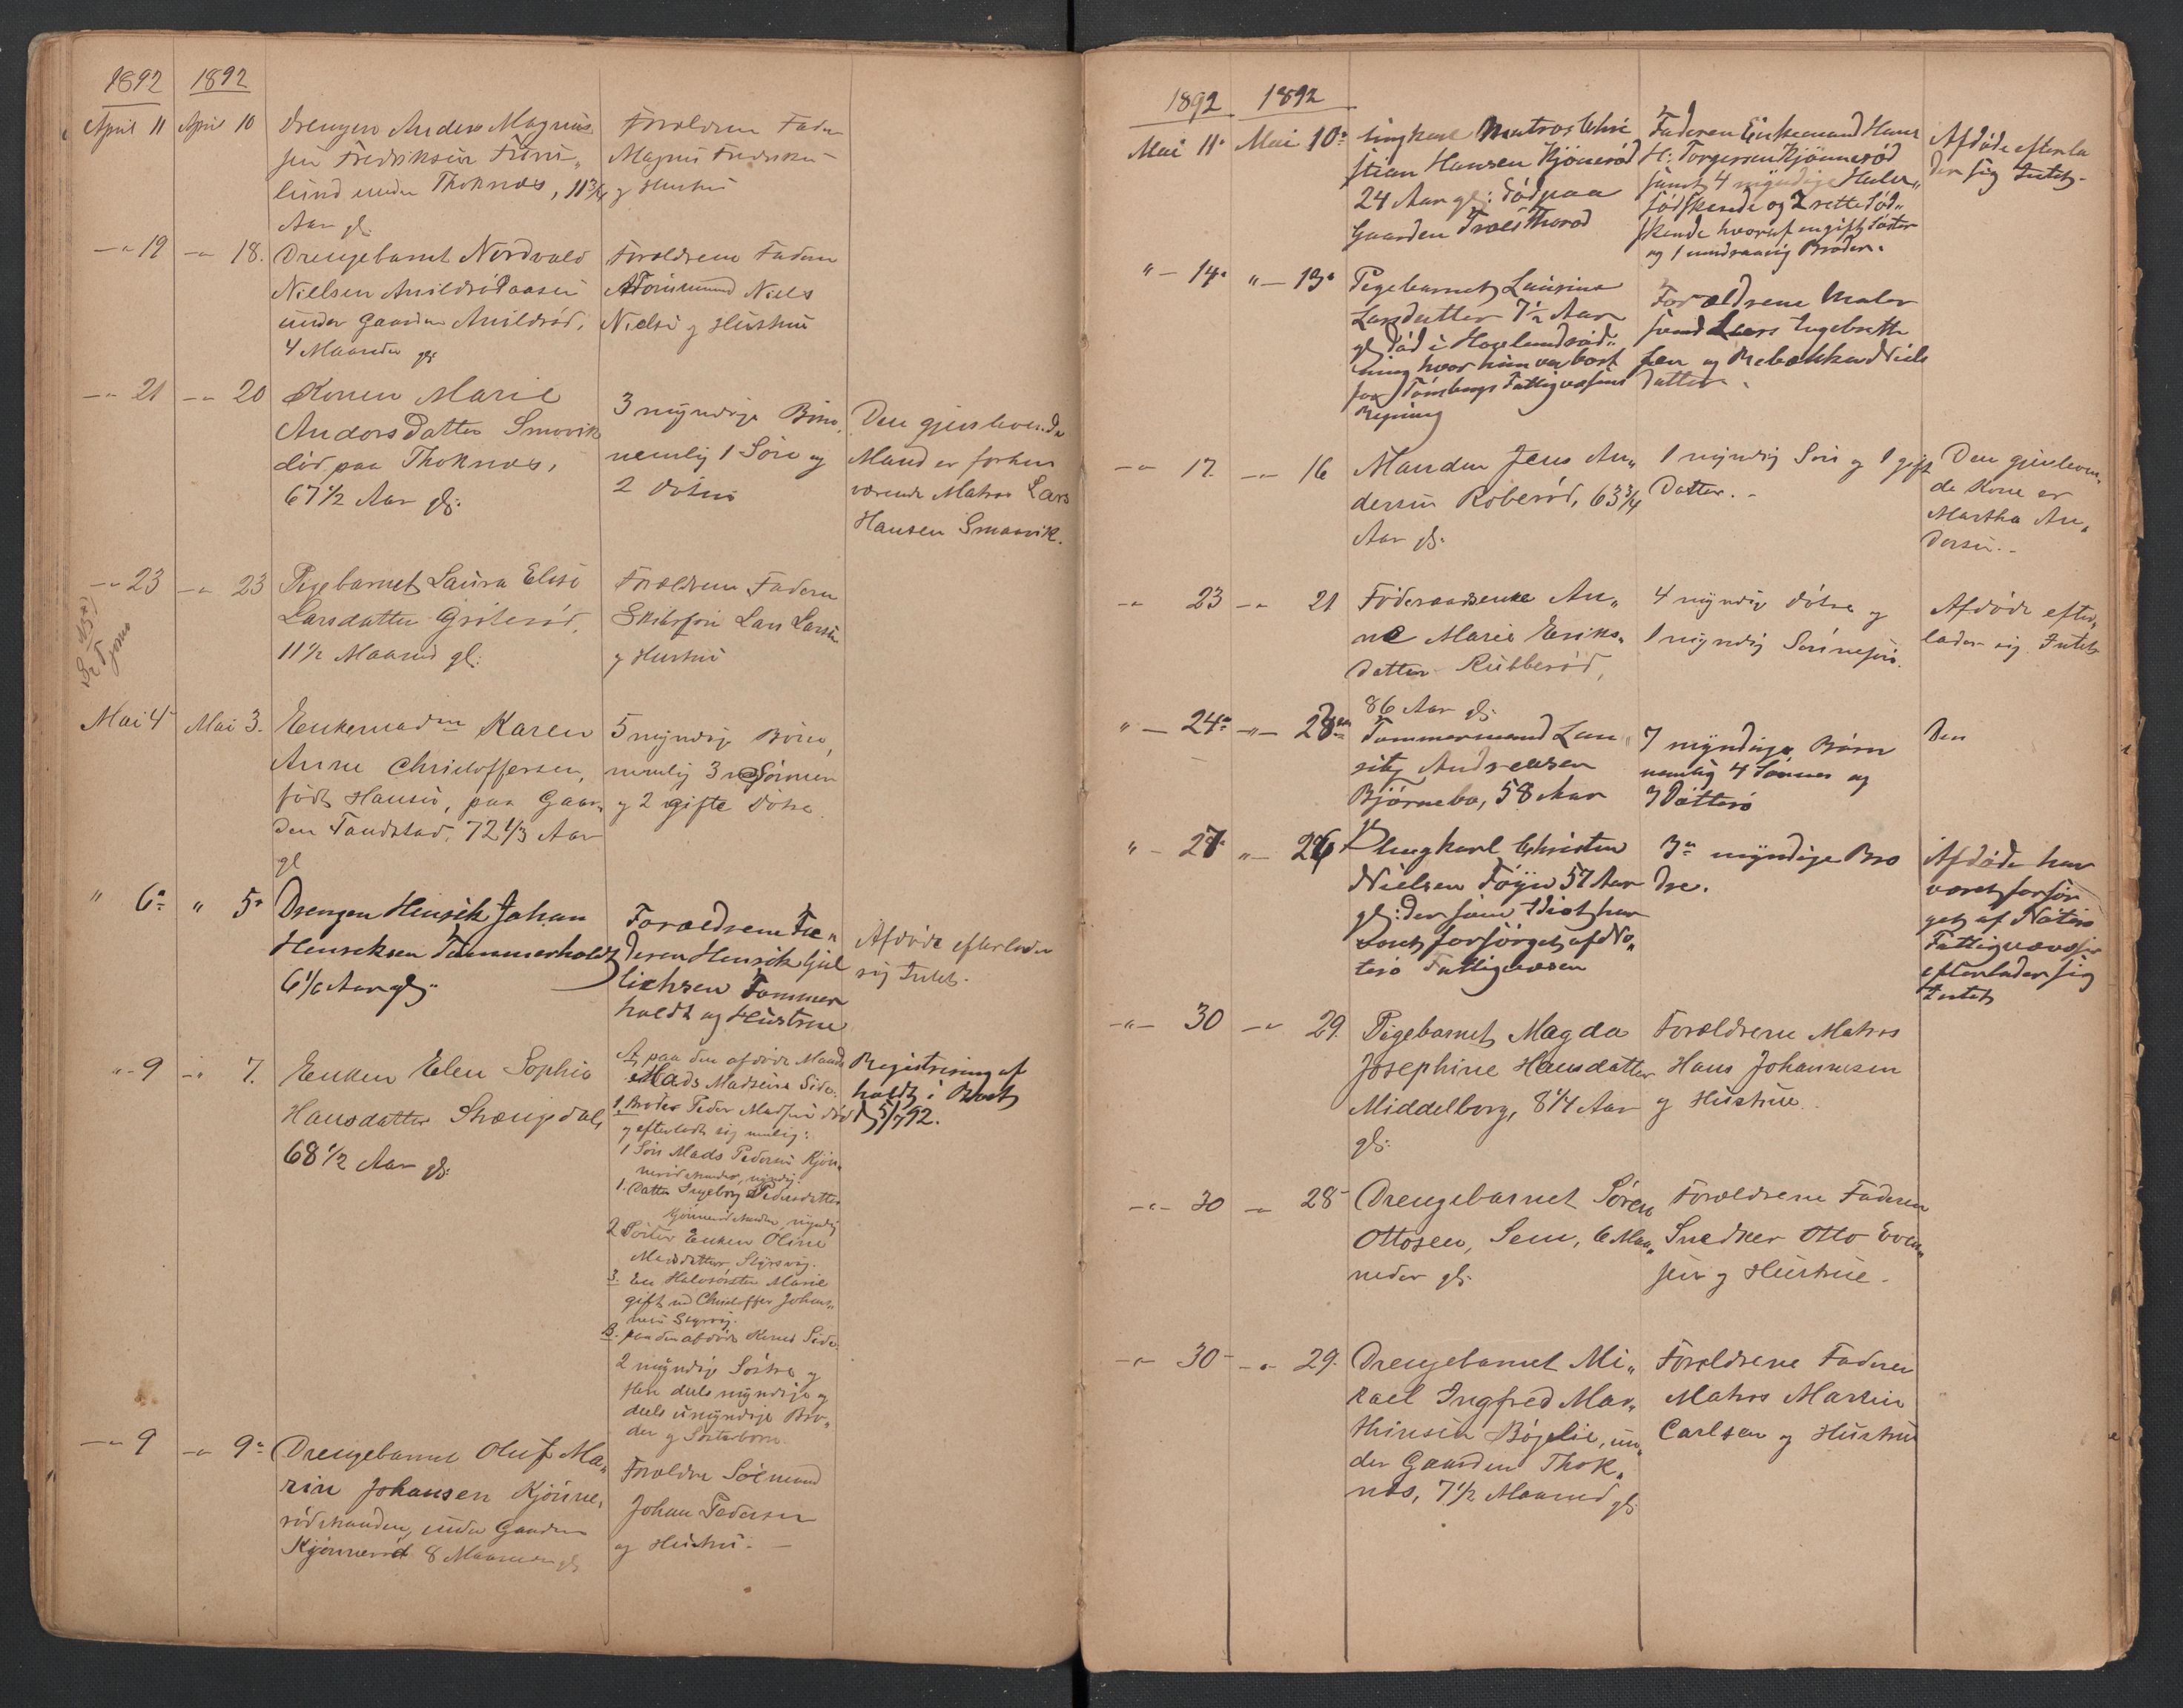 1892 1892
April 11 April 10 Drengen Anders Magnus
sen Fredriksen
lund under Thoknæs, 11 3/4
Aar gl:
Forældrene Fader
Magnus Fredriksen
og Hustru
-"- 19 -"- 18. Drengebarnet Nordvald
Nielsen
under Gaarden
4 Maaneder gl:
Forældrene Faderen
Niels
Nielsen og Hustru
-"- 21 -"- 20 Konen Marie
Andorsdatter Smovik
død paa Thoknæs,
67 1/2 Aar gl:
3 myndige Børn,
nemlig 1 Søn og
2 Døtre
Den gjenlevende
Mand er forhen
værende Matros Lars
Hansen Smaavik.
-"- 23 -"- 23 Pigebarnet Laura Elise
Larsdatter Griterød,
11 1/2 Maaned gl:
Forældrene Faderen
Lars Larsen
og Hustru
Mai 4 Mai 3. Enkemadm Karen
Anne Christoffersen,
født Hansen, paa Gaar„
den Tandstad, 72 1/3 Aar
gl
5 myndige Børn,
nemlig 3 Sønner
og 2 gifte Døtre.
" 6 " 5 Drengen Henrik Johan
Henriksen Tømmerholdt
6 1/6 Aar gl:
Forældrene Fa„
deren Henrik Gul
lichsen Tømmer
holdt og Hustrue
Afdøde efterlader
sig Intet.
"- 9 -"- 7. Enken Elen Sophie
Hansdatter Strængsdal,
68 1/2 Aar gl:
A, paa den afdøde Mands
Mads Madsens Side.
1. Broder Peder Madsen død
og efterladt sig nemlig:
1 Søn Mads Pedersen Kjøn„
1. Datter Ingeborg Pedersdatter
myndig
2 Søster Enken Oline
Madsdatter,
3. En Halvsøster Marie
gift med Christoffer Johan„
nesen
B. paa den afdøde Kones Side
2 myndige Søstre og
flere deels myndige og
deels umyndige Bro„
der og Søsterbørn.
Registrering af
holdt i Boet
5/7 92.
-"- 9 -"- 9 Drengebarnet Oluf Ma„
rin Johansen Kjønne„
rødstranden, under Gaarden
Kjønnerød 8 Maaneder gl
Forældre Sømand
Johan Pedersen
og Hustru. -
1892 1892
Mai 11 Mai 10 Ungkarl Matros Chri
stian Hansen Kjønnerød
24 Aar gl: død paa
Gaarden
Faderen Enkemand Hans
H: Torgersen Kjønnerød
samt 4 myndige Halv„
sødskende og 2 rette Sød„
skende hvoraf en gift Søster
og 1 umdraarig Broder.
Afdøde efterla
der sig Intet.
" - 14 " - 13 Pigebarnet Laurine
Larsdatter 7 1/2 Aar
gl død i
ning hvor hun var bort
for Tønsbergs Fattigvæsens
Regning
Forældrene Maler
svend Lars Ingebrett
sen og Rebekka Niels
datter.
-"- 17. -"- 16 Manden Jens An„
dersen Roberød, 63 3/4
Aar gl:
1 myndig Søn og 1 gift
Datter. -
Den gjenleven„
de Kone er
Martha An„
dersen. -
-"- 23 -"- 21 Føderaadsenke An„
ne Marie Eriks„
datter Rubberød,
86 Aar gl:
4 myndige Døtre og
1 myndig Sønnesøn.
Afdøde efter„
lader sig Intet
" - 24 -"- 23 Tømmermand Lau
ritz Andreasen
Bjørnebo, 58 Aar
7 myndige Børn
nemlig 4 Sønner og
3 Døttre
Den
" - 27 " - 26 Ungkarl Christen
Nielsen Føyn 57 Aar
gl: der som Idiot har
været forsørget af Nø„
terø Fattigvæsen
3 myndige Brø
dre.
Afdøde har
været forsør
get af Nøterø
Fattigvæsen
efterlader sig
Intet
-"- 30 -"- 29. Pigebarnet Magda
Josephine Hansdatter
Middelborg, 8 1/4 Aar
gl:
Forældrene Matros
Hans Johannesen
og Hustrue.
-"- 30 -"- 28 Drengebarnet Søren
Ottosen, Sem, 6 Maa„
neder gl:
Forældrene Faderen
Snedker Otto Even„
sen og Hustrue.
-"- 30 -"- 29. Drengebarnet Mi„
kael Ingfred Mar„
thinsen Bøgelie, un„
der Gaarden Thok„
næs, 7 1/2 Maaned gl:
Forældrene Faderen
Matros Martin
Carlsen og Hustru